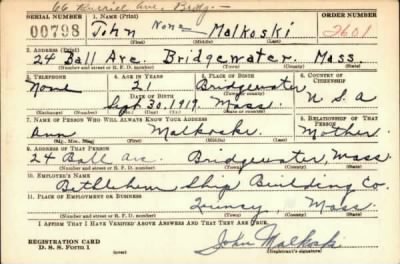 66 Ave. Bridg-
SERIAL NUMBER 1. NAME (Print) ORDER NUMBER
00798 John None Malkoski 2601
(First) (Middle) (Last)
2. ADDRESS (Print)
24 Ball Ave. Bridgewater, Mass.
(Number and street or R. F. D. number) (Town) (County) (State)
3. TELEPHONE 4. AGE IN YEARS 5. PLACE OF BIRTH 6. COUNTRY OF CITIZENSHIP
None 21 Bridgewater
DATE OF BIRTH (Town or county)
Sept. 30, 1919. Mass. U S A
(Exchange) (No.) (Mo.) (Day) (Yr.) (State or country)
7. NAME OF PERSON WHO WILL ALWAYS KNOW YOUR ADDRESS 8. RELATIONSHIP OF THAT PERSON
Ann Malkoski Mother
(Mr., Mrs., Miss) (First) (Middle) (Last)
9. ADDRESS OF THAT PERSON
24 Ball Ave. Bridgewater, Mass
(Number and street or R. F. D. number) (Town) (County) (State)
10. EMPLOYER'S NAME
Bethlehem Ship Building Co.
11. PLACE OF EMPLOYMENT OR BUSINESS
Quincy, Mass
(Number and street or R. F. D. number) (Town) (County) (State)
I AFFIRM THAT I HAVE VERIFIED ABOVE ANSWERS AND THAT THEY ARE TRUE.
REGISTRATION CARD
D. S. S. FORM 1 (over) John Malkoski
(Registrant's signature)